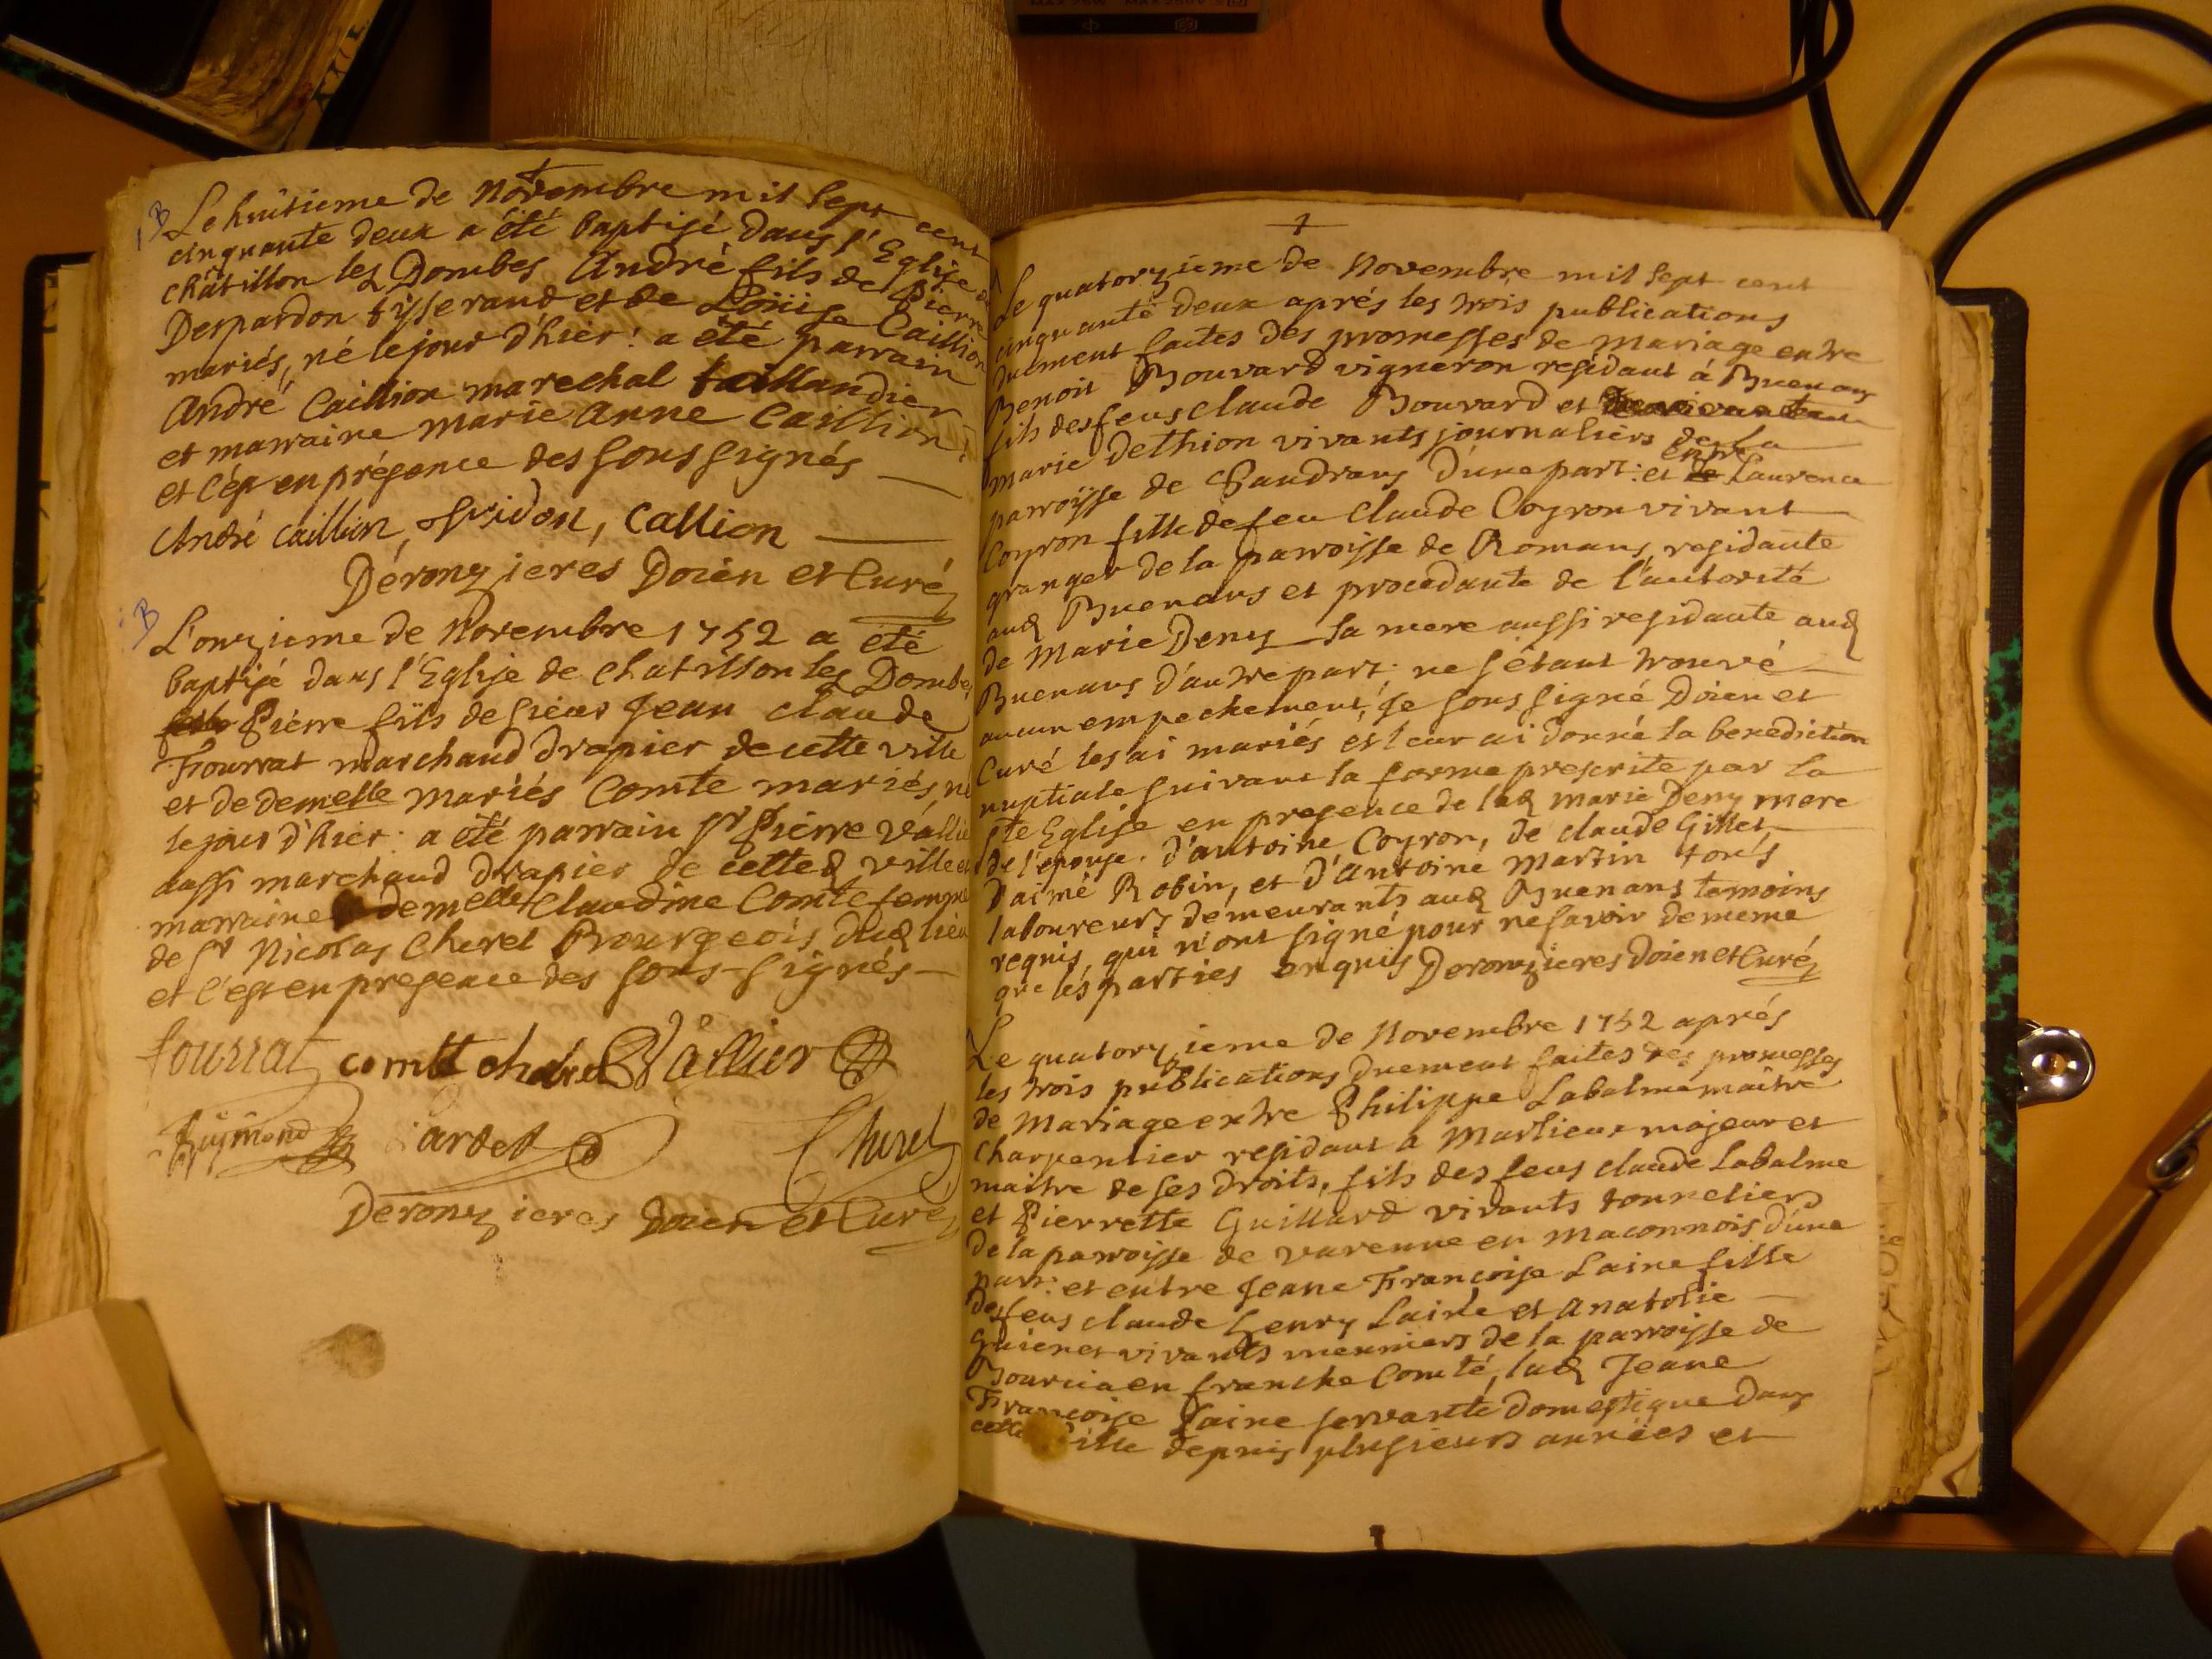 Le huitieme de Novembre mil sept cent
cinquante deux a été baptisé dans l'Eglise de
châtillon les Dombes André fils de Pierre
Despardon tysserand et de Loüise Caillion
mariés, né le jour d'hier: a été parrain
André Caillion marechal taillandier
et marraine marie anne Caillion:
et c'ést en présence des soussignés
André caillion, Callion
Déronzieres Doien et Curé
L'onzieme de Novembre 1752 a été
baptisé dans l'Eglise de chatillon les Dombes
Pierre fils de sieur Jean claude
Fourrat marchand drapier de cette ville
et de demelle mariés Comte mariés, né
le jour d'hier: a été parrain sr Pierre Vallier
aussi marchand drapier de cetted ville et
marraine demelle Claudine Comte femme
de sr Nicolas Cheret Bourgeois dud lieu
et c'est en presence des sous-signés
fourrat comte Vallier
Raymond Cheret
Deronzieres Doien et Curé
Le quatorzieme de Novembre mil sept cent
cinquante deux aprés les trois publications
duement faites des promesses de mariage entre
Benoit Bouvard vigneron residant á Buenans
fils des feus claude Bouvard et
marie dethion vivants journaliers de la
parroisse de Sandrans d'une part: et entre Laurence
Coyron fille de feu claude Coyron vivant
granger de la parroisse de Romans, residante
aud Buenans et procedante de l'autorité
de Marie Deny sa mere aussi residante aud
Buenans d'autre part: ne s'étant trouvé
aucun empechement, Je soussigné Doien et
Curé les ai mariés et leur ai donné la benediction
nuptiale suivant la forme prescrite par la
ste Eglise en presence de lad marie Deny mere
de l'epouse. d'antoine Coyron, de claude Gillet,
d'aimé Robin, et d'Antoine Martin tous
laboureurs demeurants aud Buenans temoins
requis, qui n'ont signé pour ne savoir de meme
que lés parties enquis Deronzieres doien et Curé
Le quatorzieme de Novembre 1752 aprés
les trois publications duement faites des promesses
de mariage entre Philippe Labalme maitre
charpentier residant a Marlieux majeur et
maitre de ses droits, fils des feus claude Labalme
et Pierrette Guillard vivants tonneliers
de la parroisse de varenne en maconnois d'une
part: et entre Jeane Françoise Laine fille
des feus claude henry Laine et anatolie
Guienet vivants meuniers de la parroisse de
Bourcia en franche Comté, lad Jeane
Françoise Laine servante domestique dans
cette ville depuis plusieurs années et